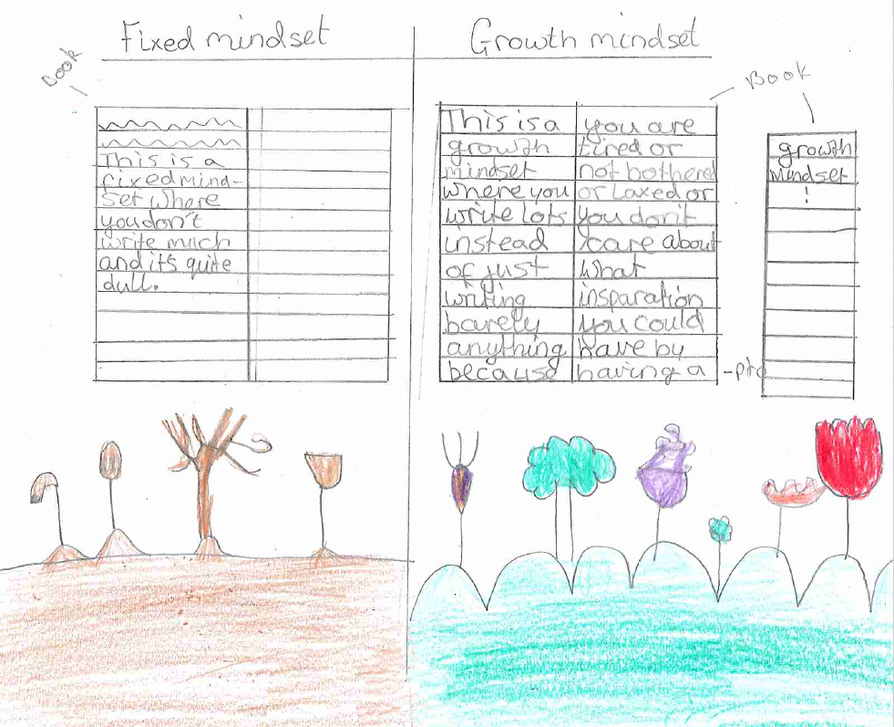 Fixed mindset
Book
This is a
fixed mind-
set where
you don't
write much
and it's quite
dull.
Growth mindset
Book
This is a
growth
mindset
where you
write lots
instead
of just
writing
barely
anything
because
you are
tired or
not bothered
or Laxed or
you don't
care about
what
insparation
you could
have by
having a
-pto
growth
mindset
!